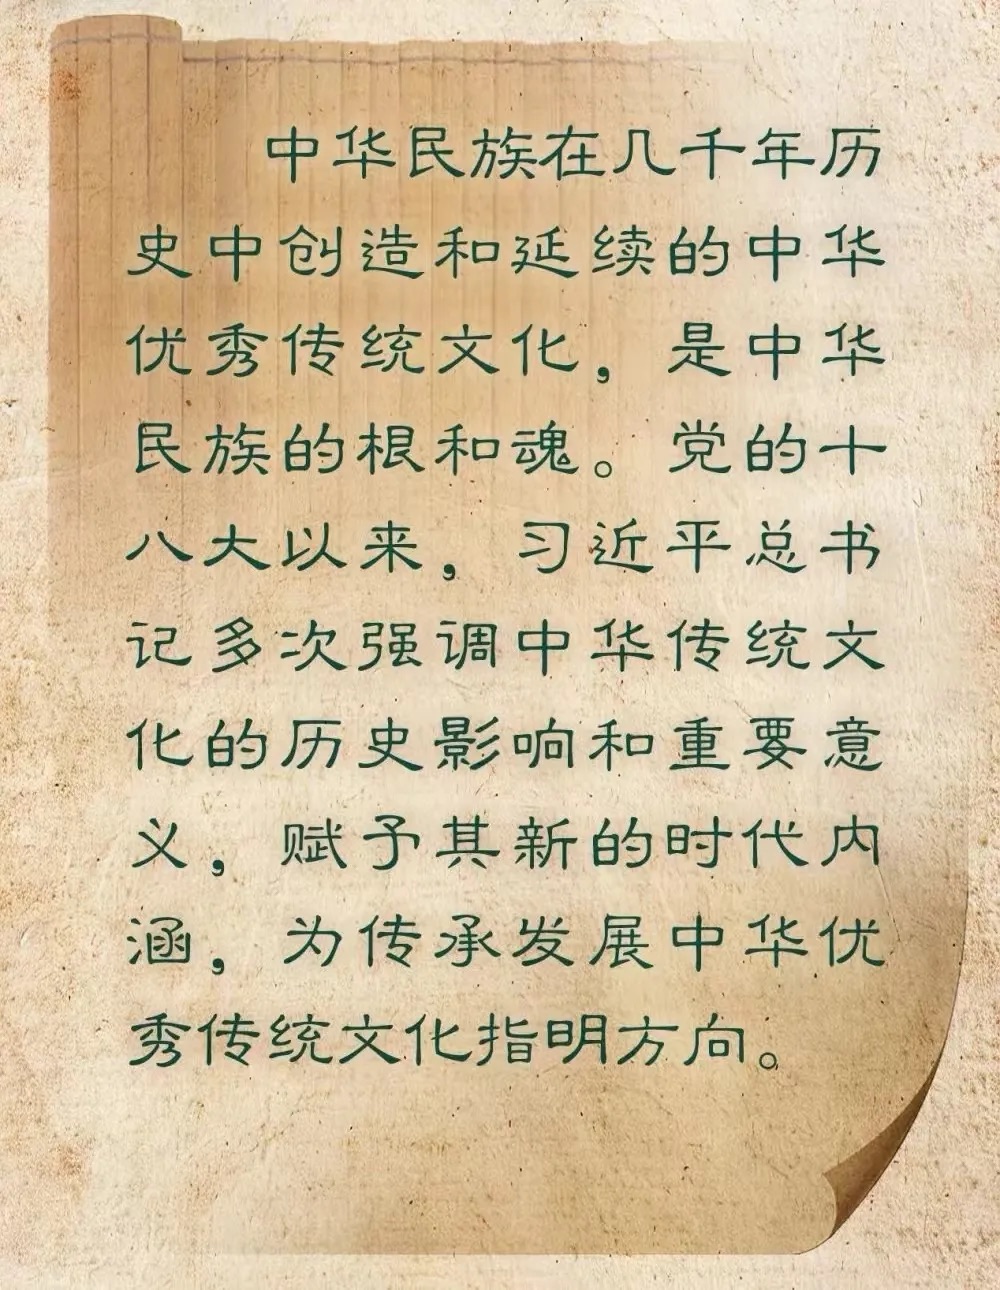 中华民族在几千年历
史中创造和延续的中华
优秀传统文化，是中华
民族的根和魂。党的十
八大以来，习近平总书
记多次强调中华传统文
化的历史影响和重要意
义，赋予其新的时代内
涵，为传承发展中华优
秀传统文化指明方向。